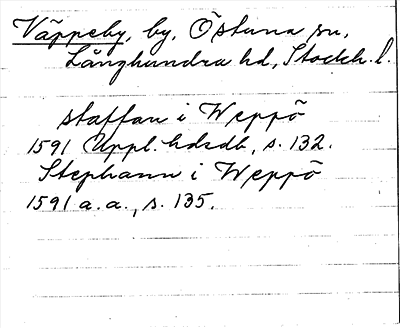 Väppeby, by, Östuna sn,
Långhundra hd, Stockh. l.
staffan i Weppö
1591 Uppl. hdsdb, s. 132.
Stephann i Weppö
1591 a.a., s. 135.